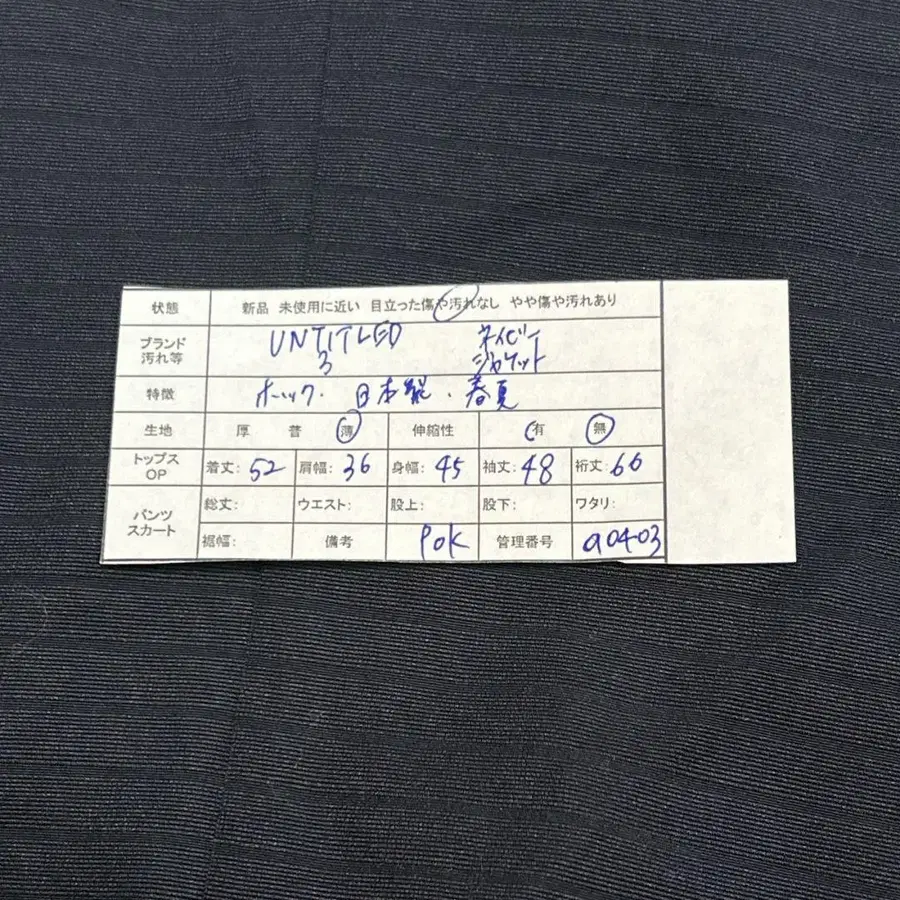 状態 新品 未使用に近い 目立った傷や汚れなし やや傷や汚れあり
ブランド 汚れ等 UNTITLED ネイビー
3 ジャケット
特徴 ホック・日本製・春夏
生地 厚 普 薄 伸縮性 有 無
トップス OP 着丈: 52 肩幅: 36 身幅: 45 袖丈: 48 裄丈: 66
パンツ スカート 総丈: ウエスト: 股上: 股下: ワタリ:
裾幅: 備考 POK 管理番号 a0403